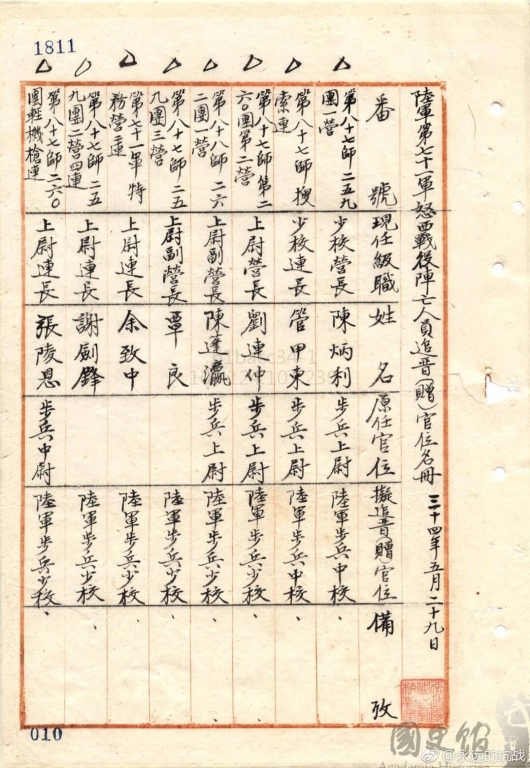 1811
陸軍第七十一軍怒西戰役陣亡人員追晉(贈)官位名冊 三十四年五月二十九日
番號 現任級職 姓名 原任官位 擬追晉(贈)官位 備考
第八十七師二五九團一營 少校營長 陳炳利 步兵上尉 陸軍步兵中校、
第八十七師搜索連 少校連長 管甲東 步兵上尉 陸軍步兵中校、
第八十七師第二六〇團第二營 上尉營長 劉連仲 步兵上尉 陸軍步兵少校、
第八十八師二六二團一營 上尉副營長 陳達瀛 步兵上尉 陸軍步兵少校、
第八十七師二五九團三營 上尉副營長 覃良 陸軍步兵少校、
第七十一軍特務營二連 上尉連長 余致中 陸軍步兵少校、
第八十七師二五九團二營四連 上尉連長 謝劍鋒 陸軍步兵少校、
第八十七師二六〇團輕機槍連 上尉連長 張陵恩 步兵中尉 陸軍步兵少校、
010
國史館
Academia Historica
@永远的抗战